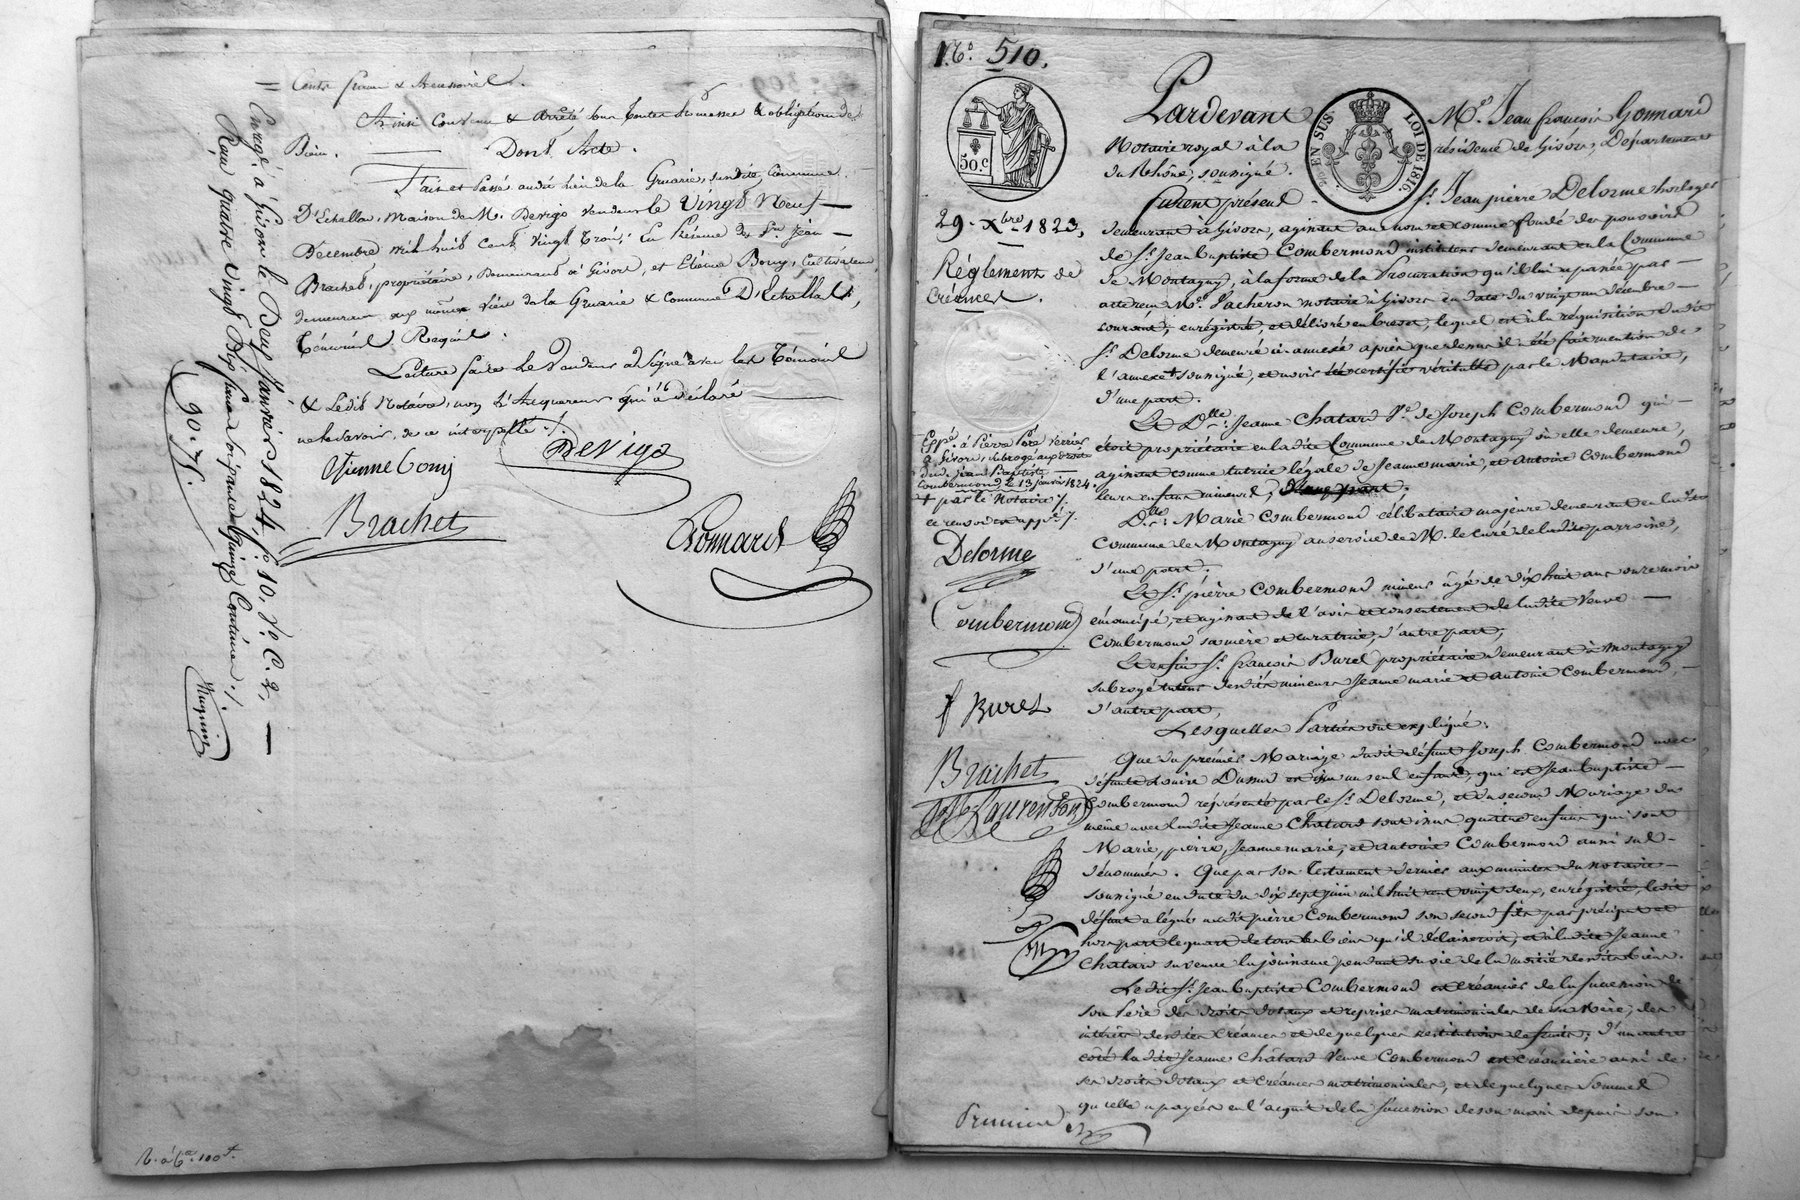 Cents francs & Accessoires.
Ainsi convenu & arrêté sous toutes & obligations de
Biens.
Dont Acte.
Fait et Passé audit lieu de la Gruarie, susdite Commune
D'Echallas, Maison de M. Devigo vendeur le Vingt Neuf
Décembre mil huit cent vingt trois; En Présence de Srs Jean
Brachet, propriétaire, demeurant à Givors, et Etienne Bony, Cultivateur
demeurant aux mêmes Lieu de la Gruarie & commune D'Echallas,
Témoins Requis.
Lecture faite Le Vendeur a signé avec les Témoins
& Ledit Notaire, non L'Acquéreur qui a déclaré
ne le savoir, de ce interpellé ./.
Etienne bony
Devigo
Brachet
Gonnard
= Enregé. à Givors le Deux Janvier 1824, fo. 10, Vo. C. 2,
Reçu quatre vingt Dix francs soixante quinze Centimes ./.
90. 75.
No. 510.
50 c.
EN SUS. LOI DE 1816.
Pardevant Me. Jean françois Gonnard
Notaire royal à la résidence de Givors, Département
du Rhône, soussigné.
29. Xbre 1823,
Réglement de
Créances.
Furent présent Sr. Jean pierre Delorme horloger
demeurant à Givors, agissant au nom et comme fondé des pouvoirs
de Sr. Jean baptiste Combermond instituteur demeurant en la Commune
de Montagny, à la forme de la Procuration qu'il lui a passée par
Me. Vacheron notaire à Givors en date du vingt un décembre
courant; enrégistré, et délivré en brevet, lequel est à la réquisition dudit
Sr. Delorme demeuré ci annexé après que dessus il a été fait mention de
l'annexe + soussigné, et avoir été certifié véritable par le Mandataire,
d'une part.
Et Dlle. Jeanne Chatard Ve. de Joseph Combermond qui
étoit propriétaire en ladite Commune de Montagny où elle demeure,
agissant comme tutrice légale de Jeanne marie, et Antoine Combermond
leurs enfans mineurs,
Dlle. Marie Combermond célibataire majeure demeurant en la dite
commune de Montagny au service de M. le curé de ladite parroisse,
d'une part.
Et Sr. pierre Combermond mineur âgé de dix huit ans onze mois
émancipé, et agissant de l'avis et consentement de ladite Veuve
Combermond sa mère et curatrice, d'autre part,
Et enfin Sr. françois Burel propriétaire demeurant à Montagny
subrogé tuteur desdits mineurs Jeanne marie et Antoine Combermond,
d'autre part,
Lesquelles Parties ont expliqué:
Que du prémier Mariage dudit défunt Joseph Combermond avec
défunte Louise un seul enfant, qui est Jean baptiste
Combermond représenté par le Sr. Delorme, et du second Mariage du
même avec ladite Jeanne Chatard sont issus quatre enfans qui sont
Marie, pierre, Jeanne marie, et antoine Combermond aussi sus
dénommés. Que par son Testament dernier aux minutes du notaire
soussigné en date du dix sept juin mil huit cent vingt deux, enrégistré, ledit
défunt a légué audit pierre Combermond son second fils par préciput et
hors part le quart de tous les biens qu'il délaisseroit, et à ladite Jeanne
Chatard sa veuve la jouissance pendant sa vie de la moitié desdits biens.
Ledit Sr. Jean baptiste Combermond est créancier de la succession de
son Père des droits dotaux et reprises matrimoniales de sa Mère, des
intérêts desdites créances et de quelques restitutions de fruits; d'un autre
côté ladite Jeanne Chatard Veuve Combermond est créancière aussi de
ses droits dotaux et créances matrimoniales, et de quelques sommes
qu'elle a payées en l'acquit de la succession de son mari depuis son
Expé. à Pierre verrier
à Givors, subrogé aux droits
dud. Jean Baptiste
Combermond, le 13 janvier 1824.
+ par le Notaire /.
ce renvoi approuvé /.
Delorme
Combermond
f Burel
Brachet
Laurenson